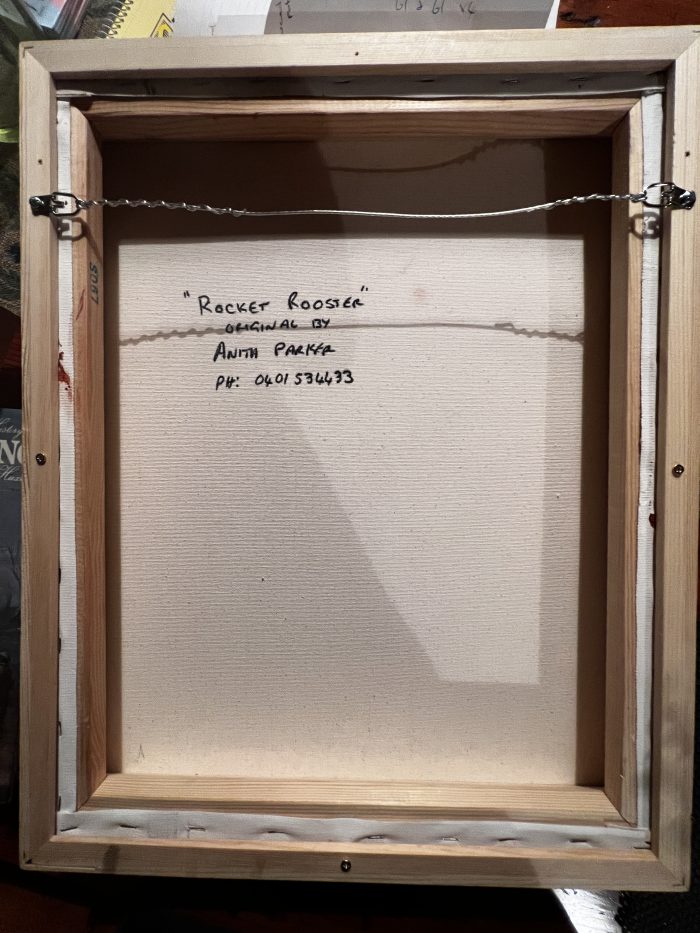 "ROCKET ROOSTER"
ORIGINAL BY
ANITH PARKER
PH: 0401 534433